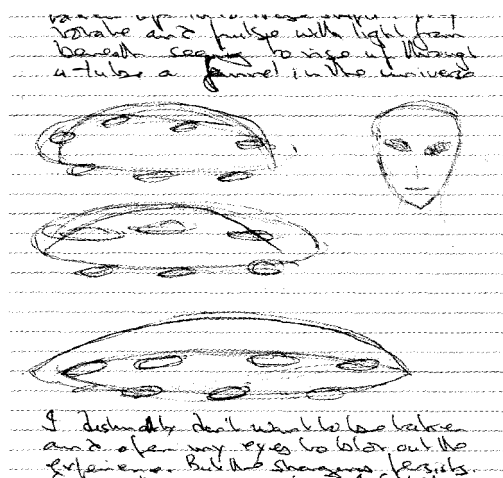 rotate and pulse with light from
beneath seeming to rise up through
a tube a funnel in the universe
I distinctly don't want to be taken
and open my eyes to blot out the
experience. But the strangeness persists.